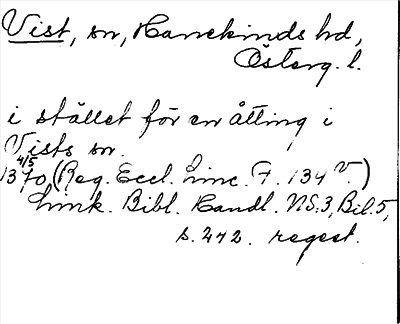 Vist, sn, Hanekinds hd,
Österg. l.
i stället för en åtting i
Vists sn.
4/5
1370 (Reg. Eccl. Linc. F. 134 v.)
Link. Bibl. Handl. NS.3, Bil.5,
s. 242. regest.